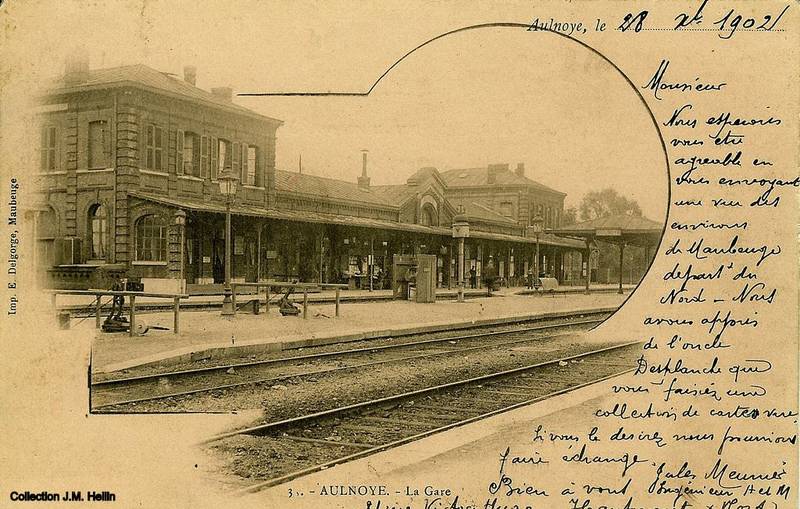 Aulnoye, le 28 Xbre 1902
Monsieur
Nous espérons
vous être
agréable en
vous envoyant
une vue des
environs
de Maubeuge
départt du
Nord - Nous
avons appris
de l'oncle
Desplanche que
vous faisiez une
collection de cartes vue
Si vous le desirez nous pourrions
faire échange
Jules Meunier
Bien à vous Ingénieur A et M
Victor Hugo Hautmont (Nord)
3. - AULNOYE. - La Gare
Imp. E. Delgorge, Maubeuge
Collection J.M. Hellin